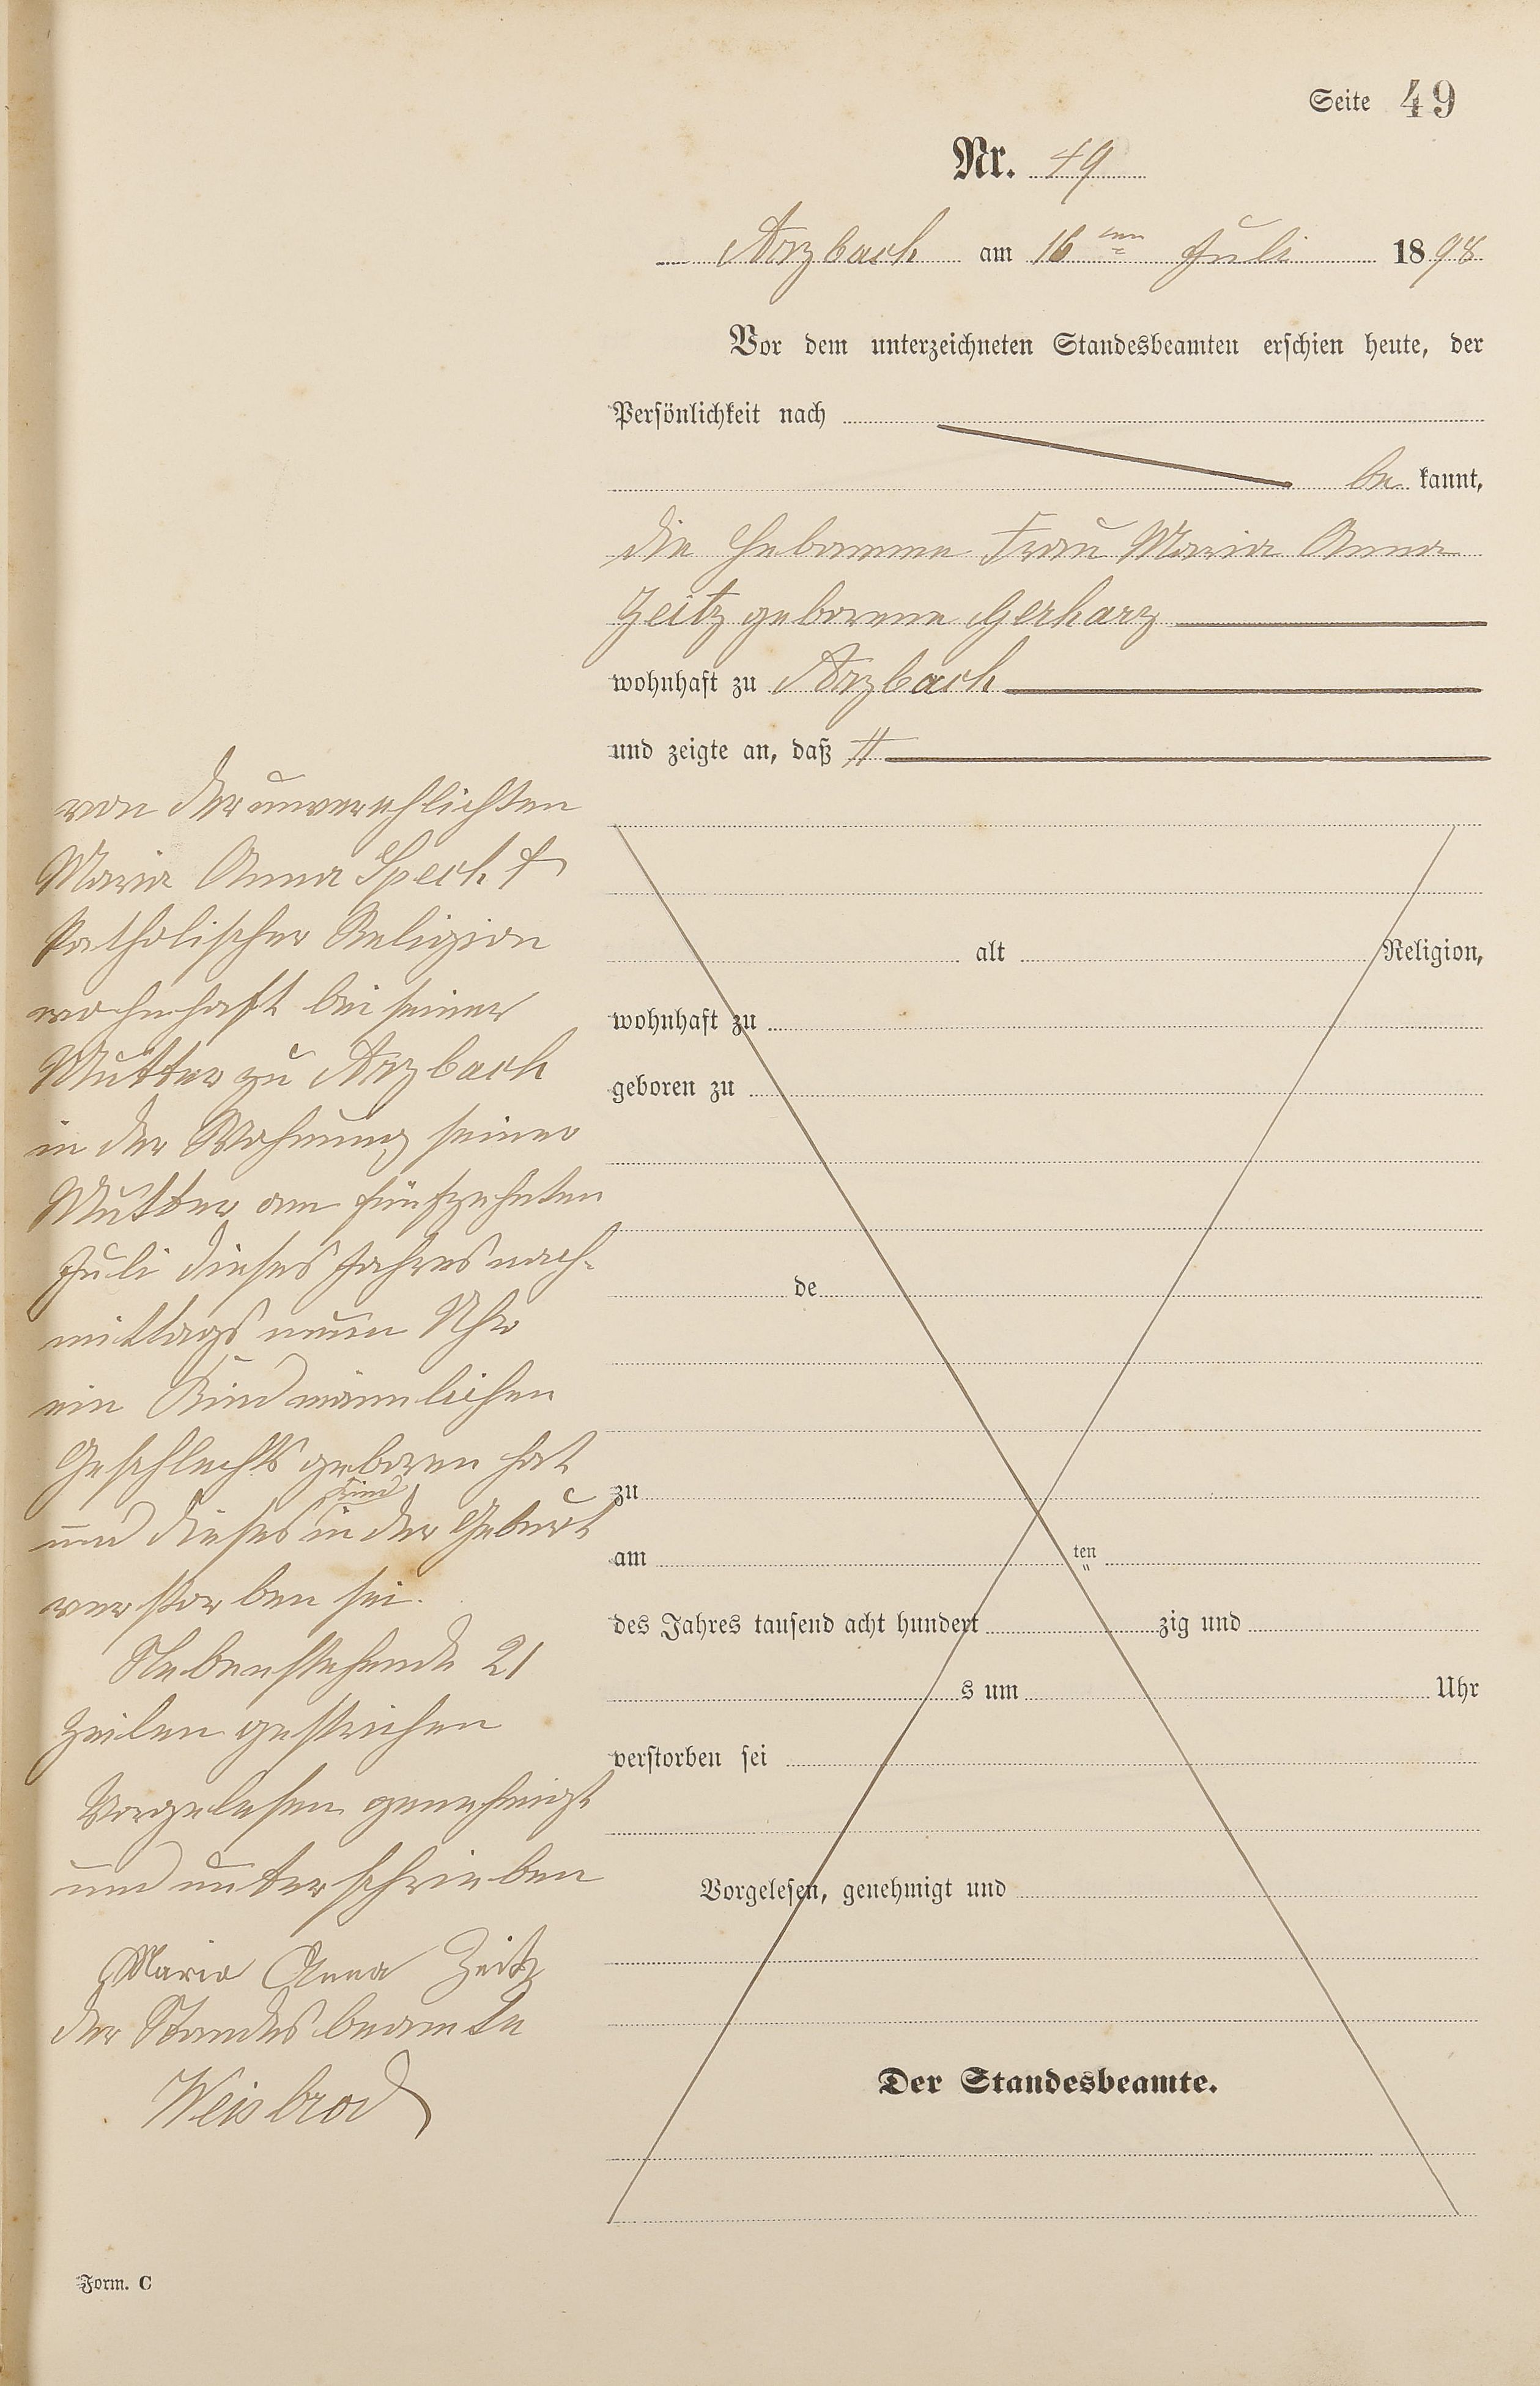 Seite 49
Nr. 49
Arzbach am 16 ten Juli 1898
Vor dem unterzeichneten Standesbeamten erschien heute, der
Persönlichkeit nach
be kannt,
die Hebamme Frau Maria Anna
Zeitz geborene Gerharz
wohnhaft zu Arzbach
und zeigte an, daß #
von der unverehlichten
Maria Anna Specht
katholischer Religion
wohnhaft bei seiner
Mutter zu Arzbach
in der Wohnung seiner
Mutter am fünfzehnten
Juli dieses Jahres nach-
mittags neun Uhr
ein Kind männlichen
Geschlechts geboren hat
und dieses Kind in der Geburt
verstorben sei.
Nebenstehende 21
Zeilen gestrichen
Vorgelesen genehmigt
und unterschrieben
Maria Anna Zeitz
der Standesbeamte
Weisbrod
alt Religion,
wohnhaft zu
geboren zu
de
zu
am ten
des Jahres tausend acht hundert zig und
s um Uhr
verstorben sei
Vorgelesen, genehmigt und
Der Standesbeamte.
Form. C